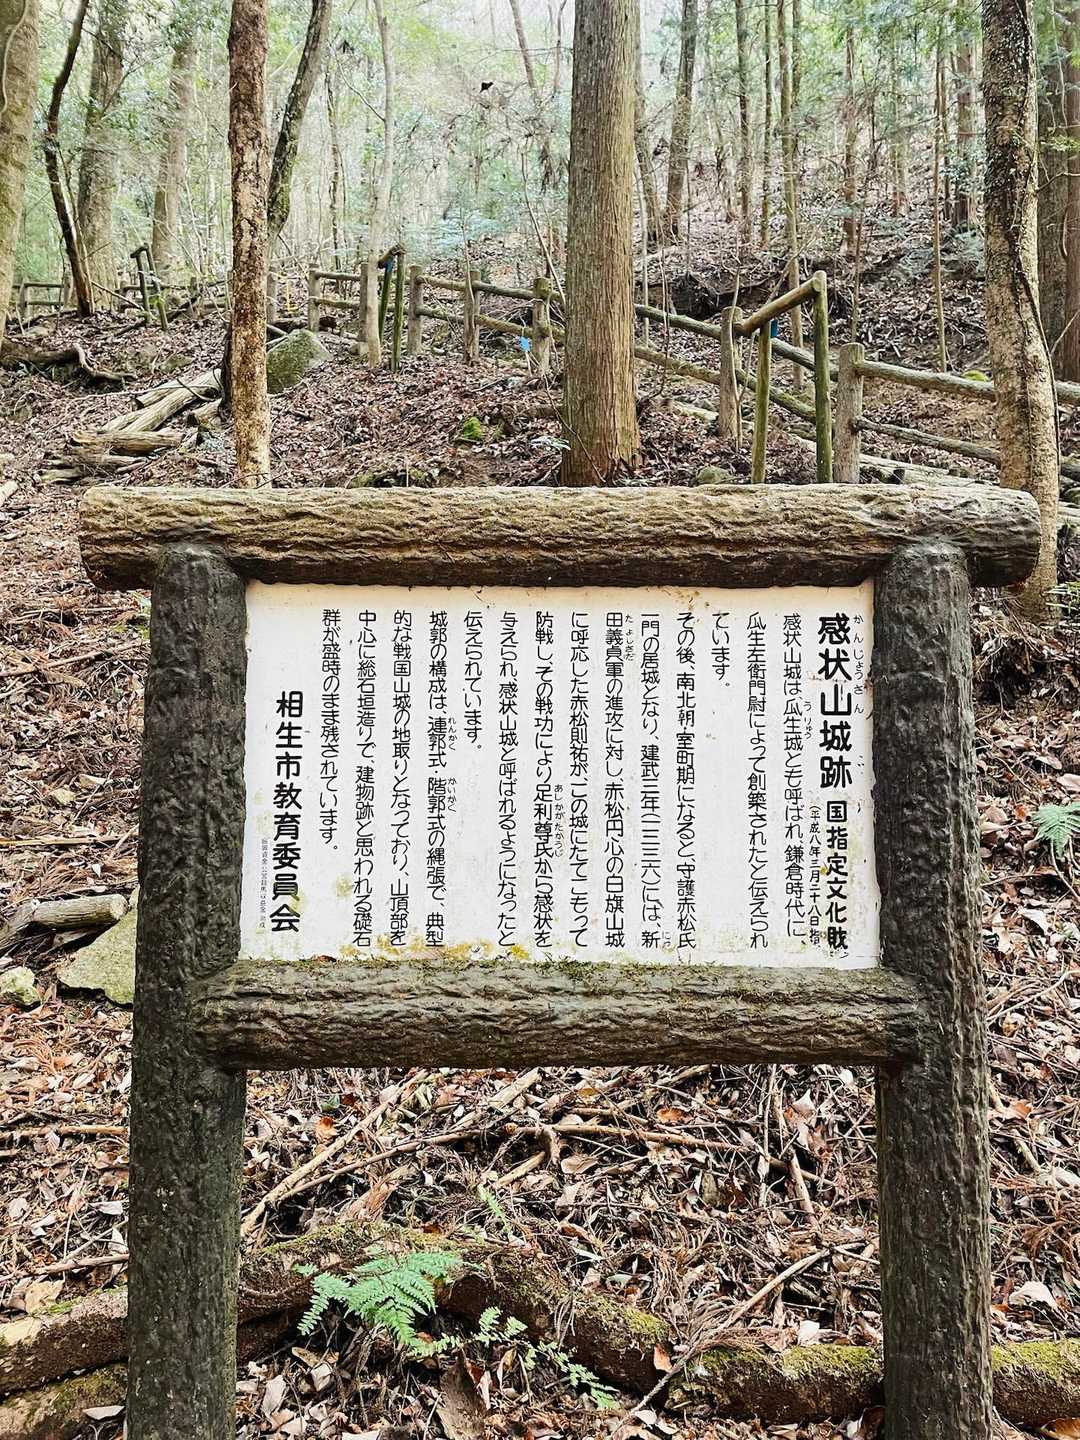 感状山城跡 国指定文化財
かんじょうさん
(平成八年三月二十八日指定)
感状山城は、瓜生城とも呼ばれ、鎌倉時代に、
うりゅう
瓜生左衛門尉によって創築されたと伝えられ
ています。
その後、南北朝・室町期になると、守護赤松氏
一門の居城となり、建武三年(一三三六)には、新
にっ
田義貞軍の進攻に対し、赤松円心の白旗山城
たよしさだ
に呼応した赤松則祐が、この城にたてこもって
防戦し、その戦功により足利尊氏から感状を
あしかがたかうじ
与えられ、感状山城と呼ばれるようになったと
伝えられています。
城郭の構成は、連郭式・階郭式の縄張で、典型
れんかく かいかく
的な戦国山城の地取りとなっており、山頂部を
中心に総石垣造りで、建物跡と思われる礎石
群が盛時のまま残されています。
相生市教育委員会